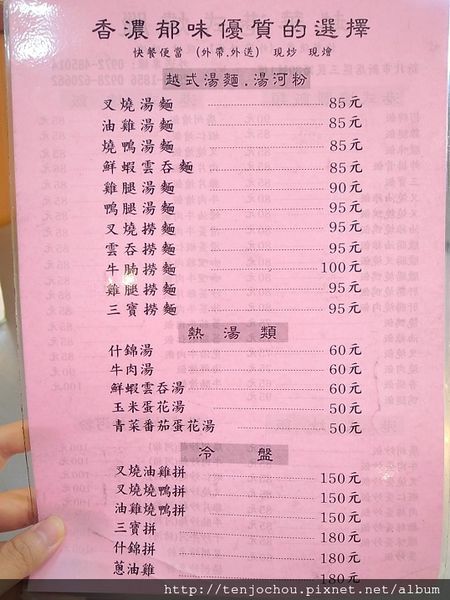 香濃郁味優質的選擇
快餐便當 (外帶.外送) 現炒 現燴
越式湯麵.湯河粉
叉燒湯麵 85元
油雞湯麵 85元
燒鴨湯麵 85元
鮮蝦雲吞麵 85元
雞腿湯麵 90元
鴨腿湯麵 95元
叉燒撈麵 95元
雲吞撈麵 95元
牛腩撈麵 100元
雞腿撈麵 95元
三寶撈麵 95元
熱湯類
什錦湯 60元
牛肉湯 60元
鮮蝦雲吞湯 60元
玉米蛋花湯 50元
青菜番茄蛋花湯 50元
冷盤
叉燒油雞拼 150元
叉燒燒鴨拼 150元
油雞燒鴨拼 150元
三寶拼 180元
什錦拼 180元
蔥油雞 180元
http://tenjochou.pixnet.net/album